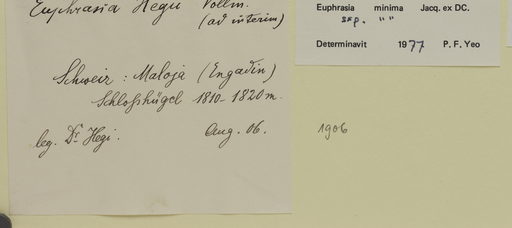 Euphrasia Hegii Vollm.
(ad interim)
Schweiz : Maloja (Engadin)
Schloßhügel 1810-1820 m.
leg. Dr. Hegi. Aug. 06.
Euphrasia minima Jacq. ex DC.
ssp. " "
Determinavit 1977 P. F. Yeo
1906